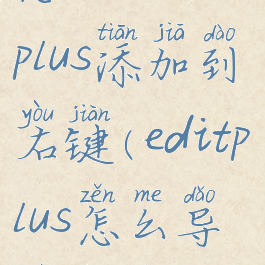 tiān jiā dào
plus添加到
yòu jiàn
右键(editp
zěn me dǎo
lus怎么导